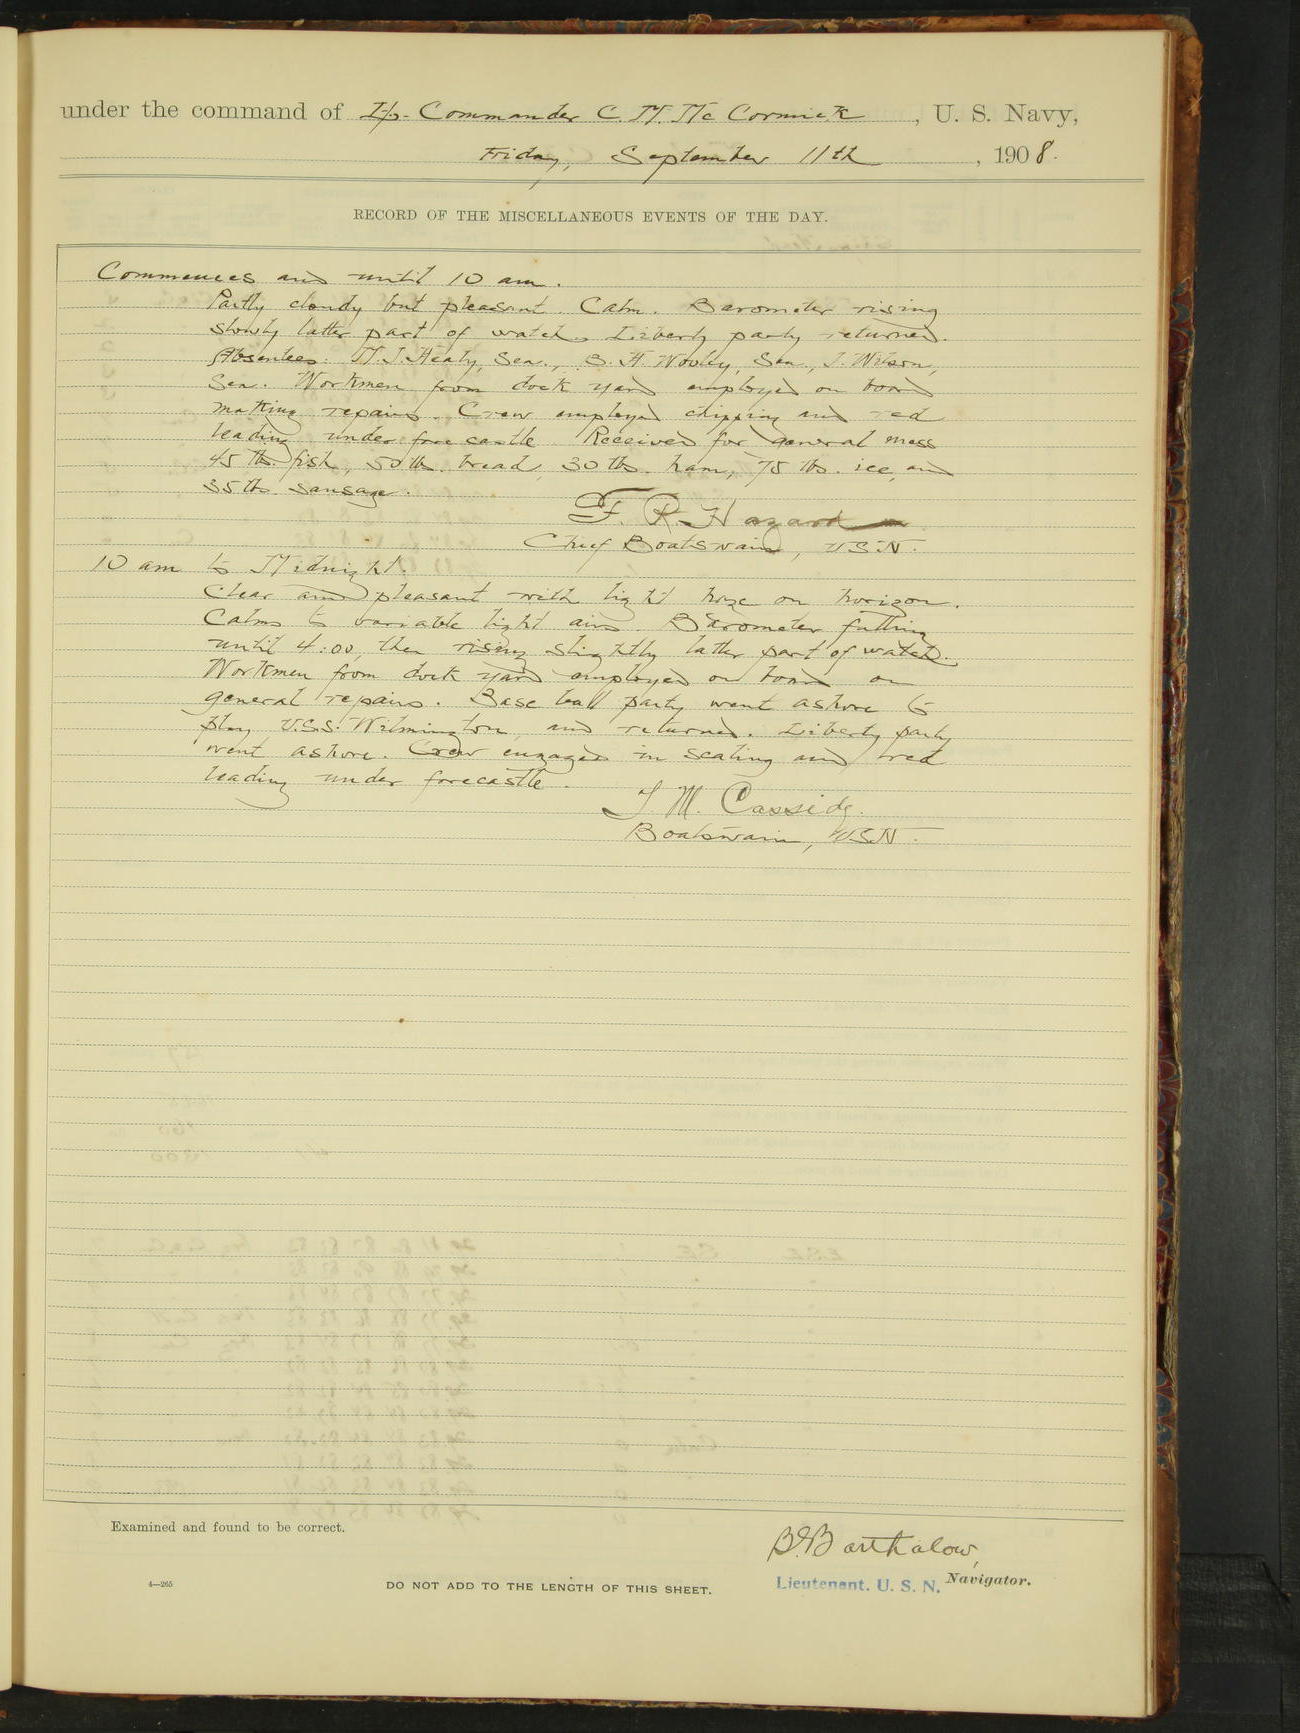 under the command of Lt. Commander C. M. McCormick, U. S. Navy,
Friday, September 11th, 1908.
RECORD OF THE MISCELLANEOUS EVENTS OF THE DAY.
Commences and until 10 am.
Partly cloudy but pleasant. Calm. Barometer rising
slowly latter part of watch. Liberty party returned.
Absentees: M.J. Healy, Sea., S. H. Wooley, Sea., J. Wilson,
Sea. Workmen from dock yard employed on board
making repairs. Crew employed chipping and red
leading under fore castle. Received for general mess
45 lbs. fish, 50 lbs. bread, 30 lbs. ham, 75 lbs. ice, and
35 lbs. sausage.
F. R. Hazard
Chief Boatswain, USN.
10 am to Midnight.
Clear and pleasant with light haze on horizon.
Calms to variable light airs. Barometer falling
until 4:00, then rising slightly latter part of watch.
Workmen from dock yard employed on board on
general repairs. Base ball party went ashore to
play U.S.S. Wilmington, and returned. Liberty party
went ashore. Crew engaged in scaling and red
leading under forecastle.
J. M. Cassidy.
Boatswain, USN.
Examined and found to be correct.
Barthalow,
Lieutenant. U. S. N. Navigator.
4—265
DO NOT ADD TO THE LENGTH OF THIS SHEET.